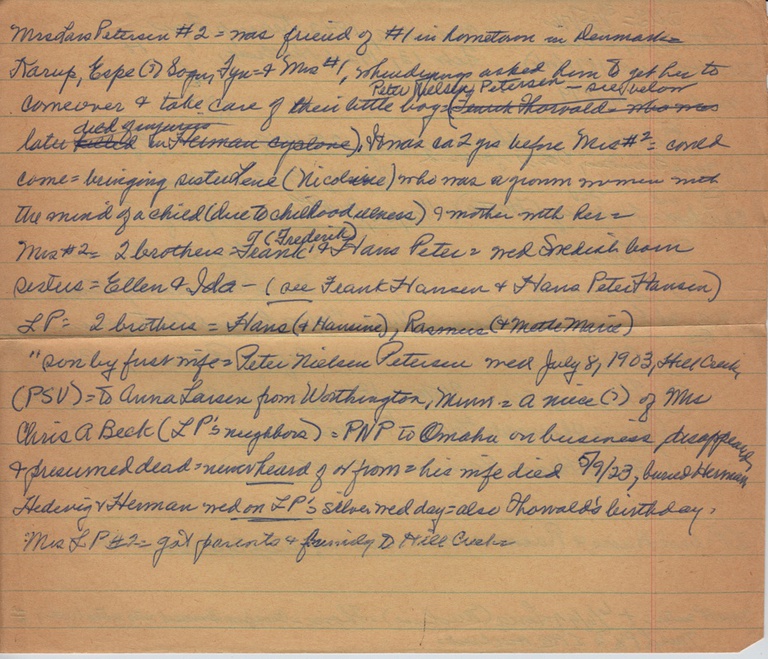 Mrs Lars Petersen #2 = was friend of #1 in hometown in Denmark =
Karup, Espe (?) Sogn, Fyn = & Mrs #1, when dying asked him to get her to
Peter Nielsen Petersen — see below
come over & take care of their little boy = (Frank Thorvald = who was
died of injuries
later killed in Herman cyclone), It was ca 2 yrs before Mrs #2 = could
come = bringing sister Lene (Nicoline) who was a grown woman with
the mind of a child (due to childhood illness) & mother with her =
(Frederik)
Mrs #2 = 2 brothers = Frank & Hans Peter = wed Swedish born
sisters = Ellen & Ida — (see Frank Hansen & Hans Peter Hansen)
LP = 2 brothers = Hans (& Hansine), Rasmus (& Mette Marie)
" son by first wife = Peter Nielsen Petersen wed July 8, 1903, Hill Creek,
(PSV) = to Anna Larsen from Worthington, Minn = a niece (?) of Mrs
Chris A Beck (LP's neighbors) = PNP to Omaha on business disappeared,
& presumed dead = never heard of or from = his wife died 5/9/23, buried Herman,
Hedevig & Herman wed on LP's silver wed day = also Thorvald's birthday.
Mrs LP #2 = got parents & family to Hill Creek =